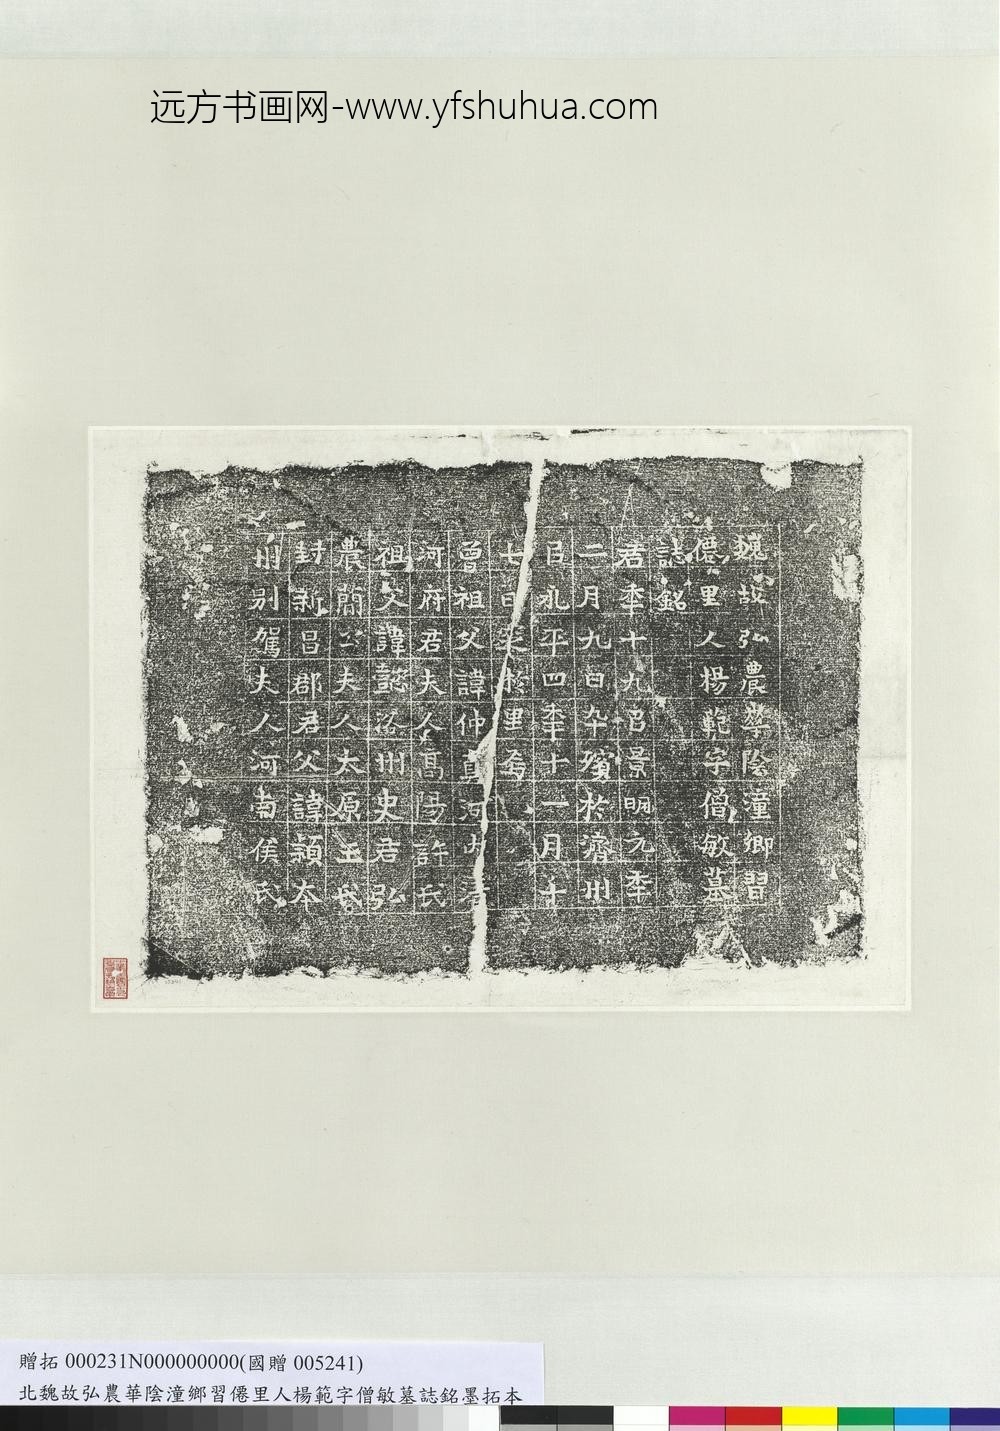 远方书画网-www.yfshuhua.com
魏故弘農華陰潼鄉習
僊里人楊範字僧敏墓
誌銘
君年十九以景明元年
二月九日卒殯於濟州
以永平四年十一月十
七日窆於里焉
曾祖父諱仲真河州君
河府君夫人高陽許氏
祖父諱懿洛州史君弘
農簡公夫人太原王氏
封新昌郡君父諱穎本
州別駕夫人河南侯氏
贈拓 000231N000000000(國贈 005241)
北魏故弘農華陰潼鄉習僊里人楊範字僧敏墓誌銘墨拓本